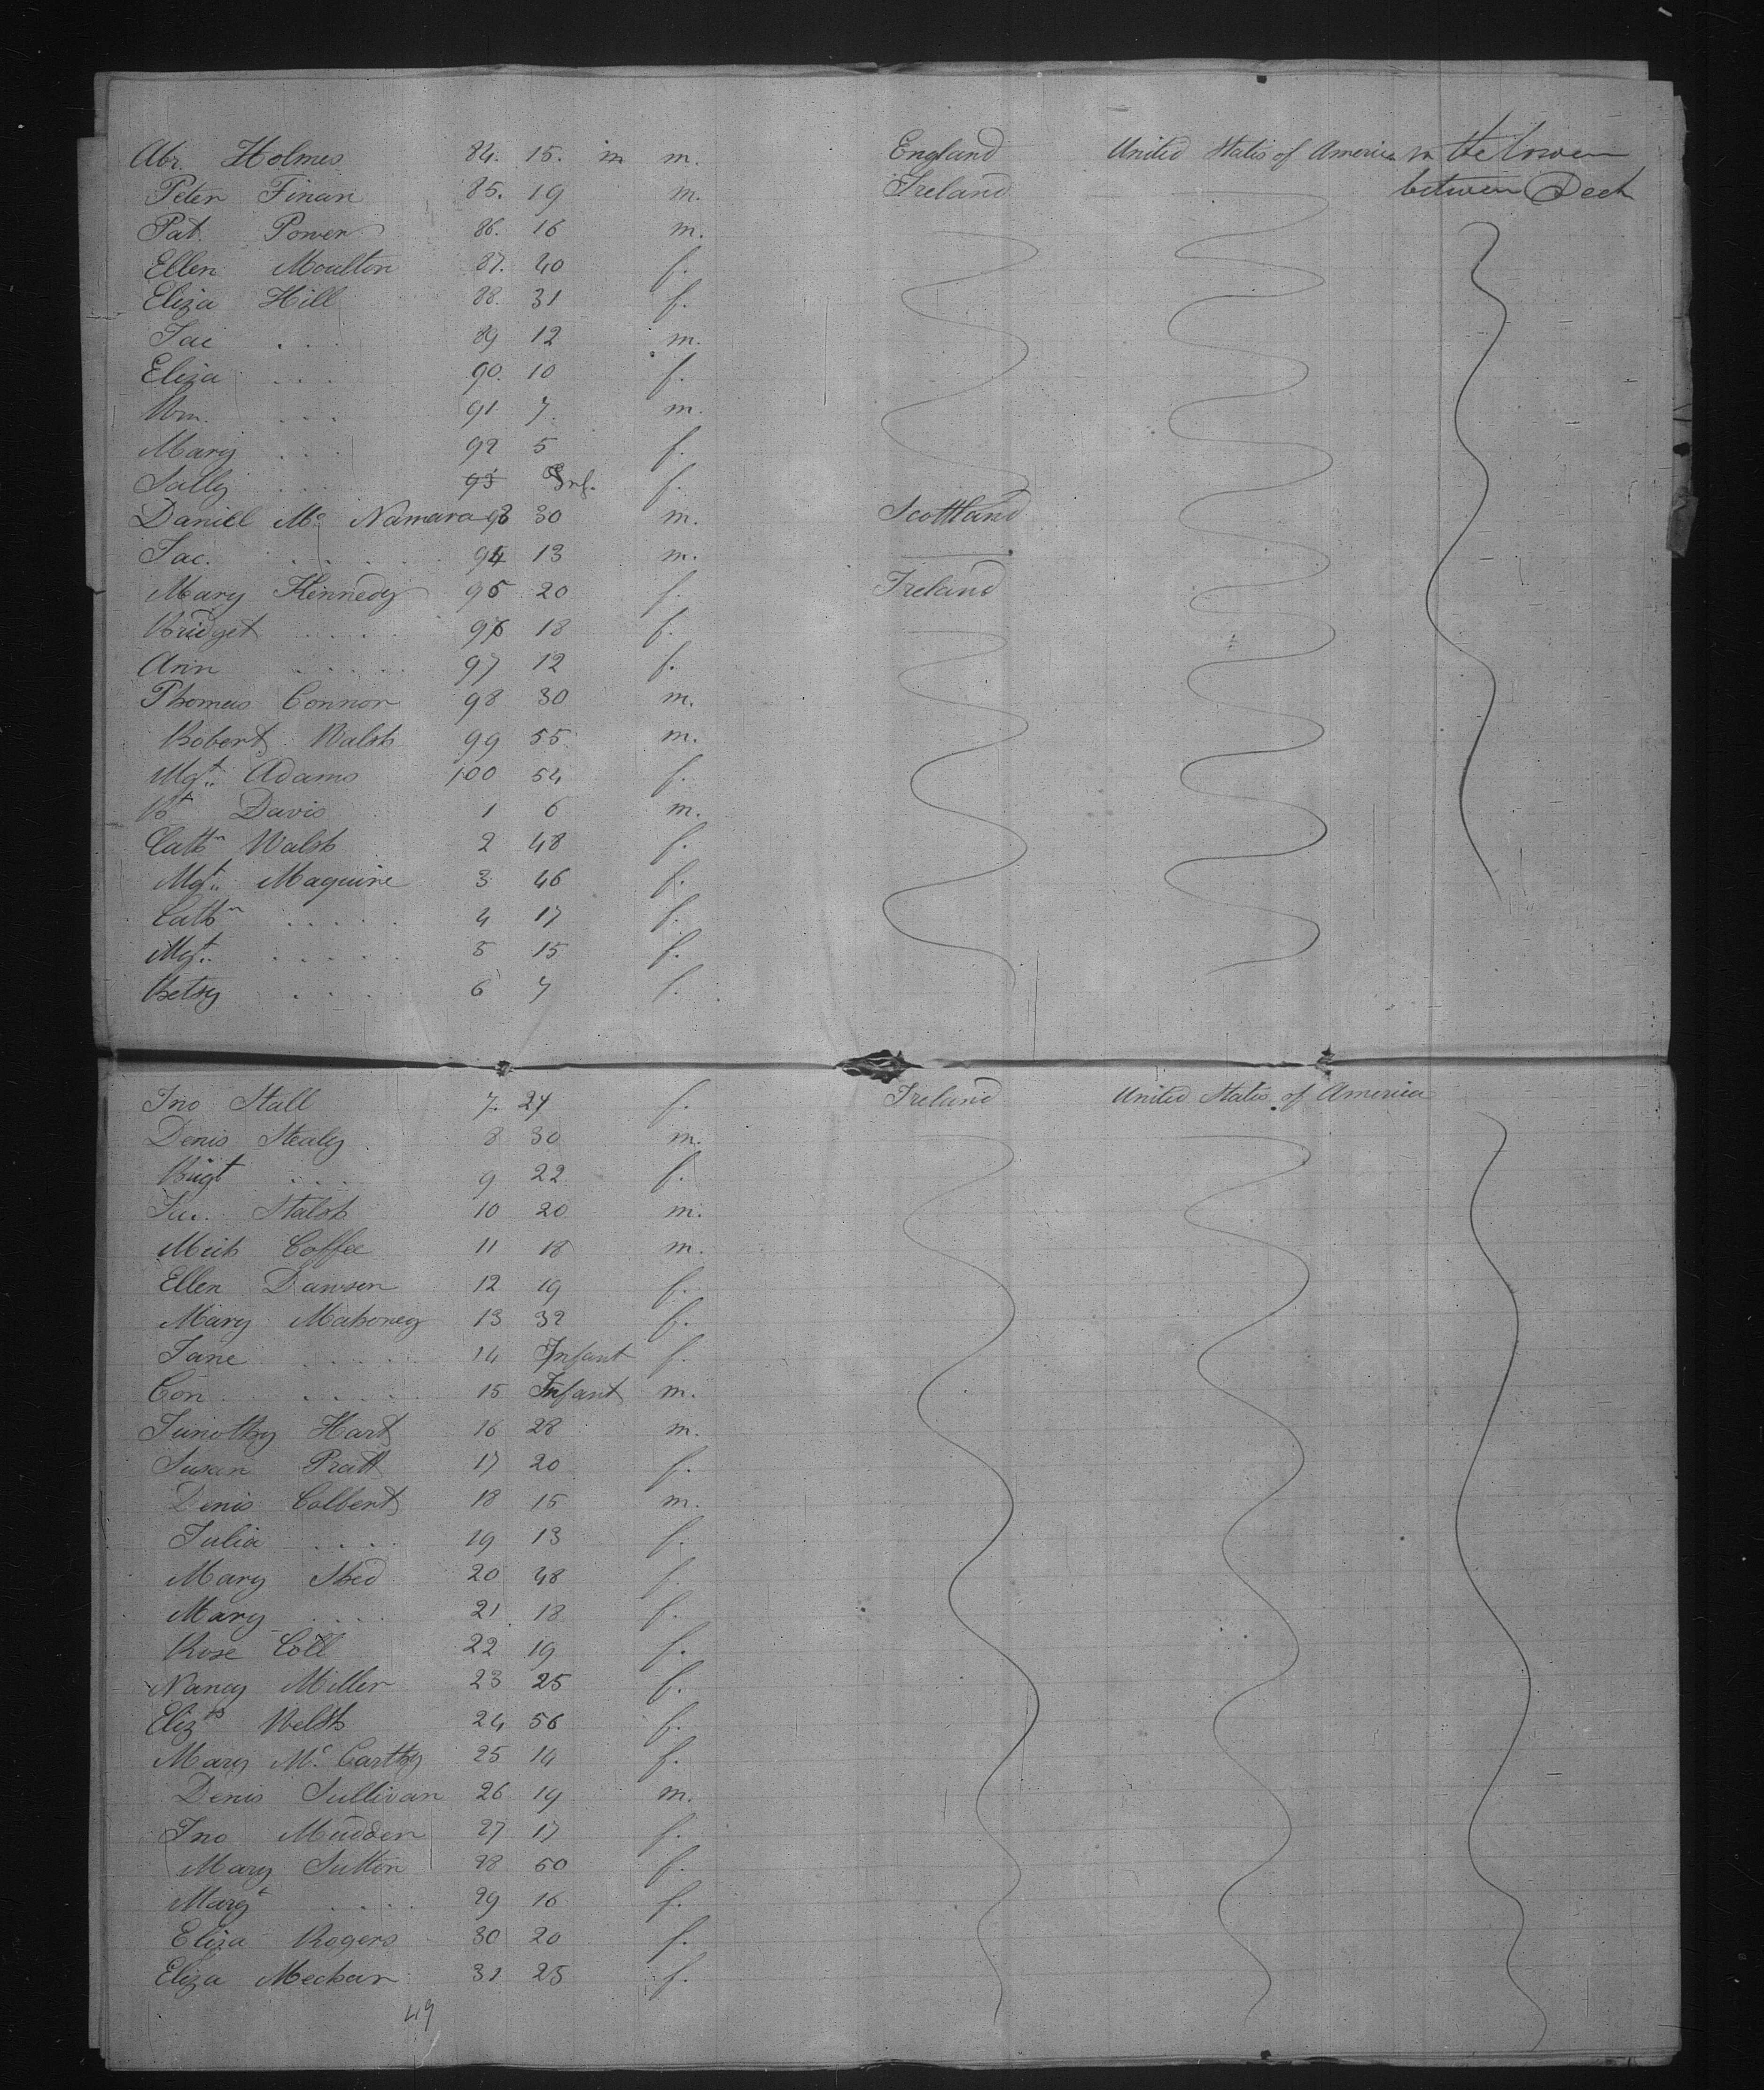 Abr. Holmes 84. 15. m m. England United States of America in the lower
Peter Finan 85. 19 m. Ireland between Deck
Pat. Power 86. 16 m.
Ellen Moulton 87. 40 f.
Eliza Hill 88. 31 f.
Jac . . . 89 12 m.
Eliza . . . 90. 10 f.
Wm. . . . 91 7. m.
Mary . . . 92 5 f.
Sally . . . 93 Inf. f.
Daniel Mc Namara 93 30 m. Scottland
Jac. . . . . . 94 13 m.
Mary Kennedy 95 20 f. Ireland
Bridget . . . . 96 18 f.
Ann . . . . . 97 12 f.
Thomas Connor 98 30 m.
Robert Walsh 99 55 m.
Mgt. Adams 100 54 f.
Rt Davis 1 6 m.
Cathn Walsh 2 48 f.
Mgt. Maguire 3 46 f.
Cathn . . . . . 4 17 f.
Mgt. . . . . . 5 15 f.
Betsy . . . . 6 7 f.
Jno Hall 7. 24 f. Ireland United States of America
Denis Healy 8 30 m.
Brigt . . . . 9 22 f.
10 20 m.
Mich Coffee 11 18 m.
Ellen Dawson 12 19 f.
Mary Mahoney 13 32 f.
Jane . . . . . 14 Infant f.
Con . . . . . 15 Infant m.
Timothy Hart 16 28 m.
Susan Pratt 17 20 f.
Denis Colbert 18 15 m.
Julia . . . . 19 13 f.
Mary Shed 20 48 f.
Mary . . . . 21 18 f.
Rose Coll 22 19 f.
Nancy Miller 23 25 f.
Elizth Welsh 24 56 f.
Mary Mc Carthy 25 14 f.
Denis Sullivan 26 19 m.
Jno Mudden 27 17 f.
Mary Sutton 28 50 f.
Margt . . . . 29 16 f.
Eliza Rogers 30 20 f.
Eliza Mechan 31 25 f.
49